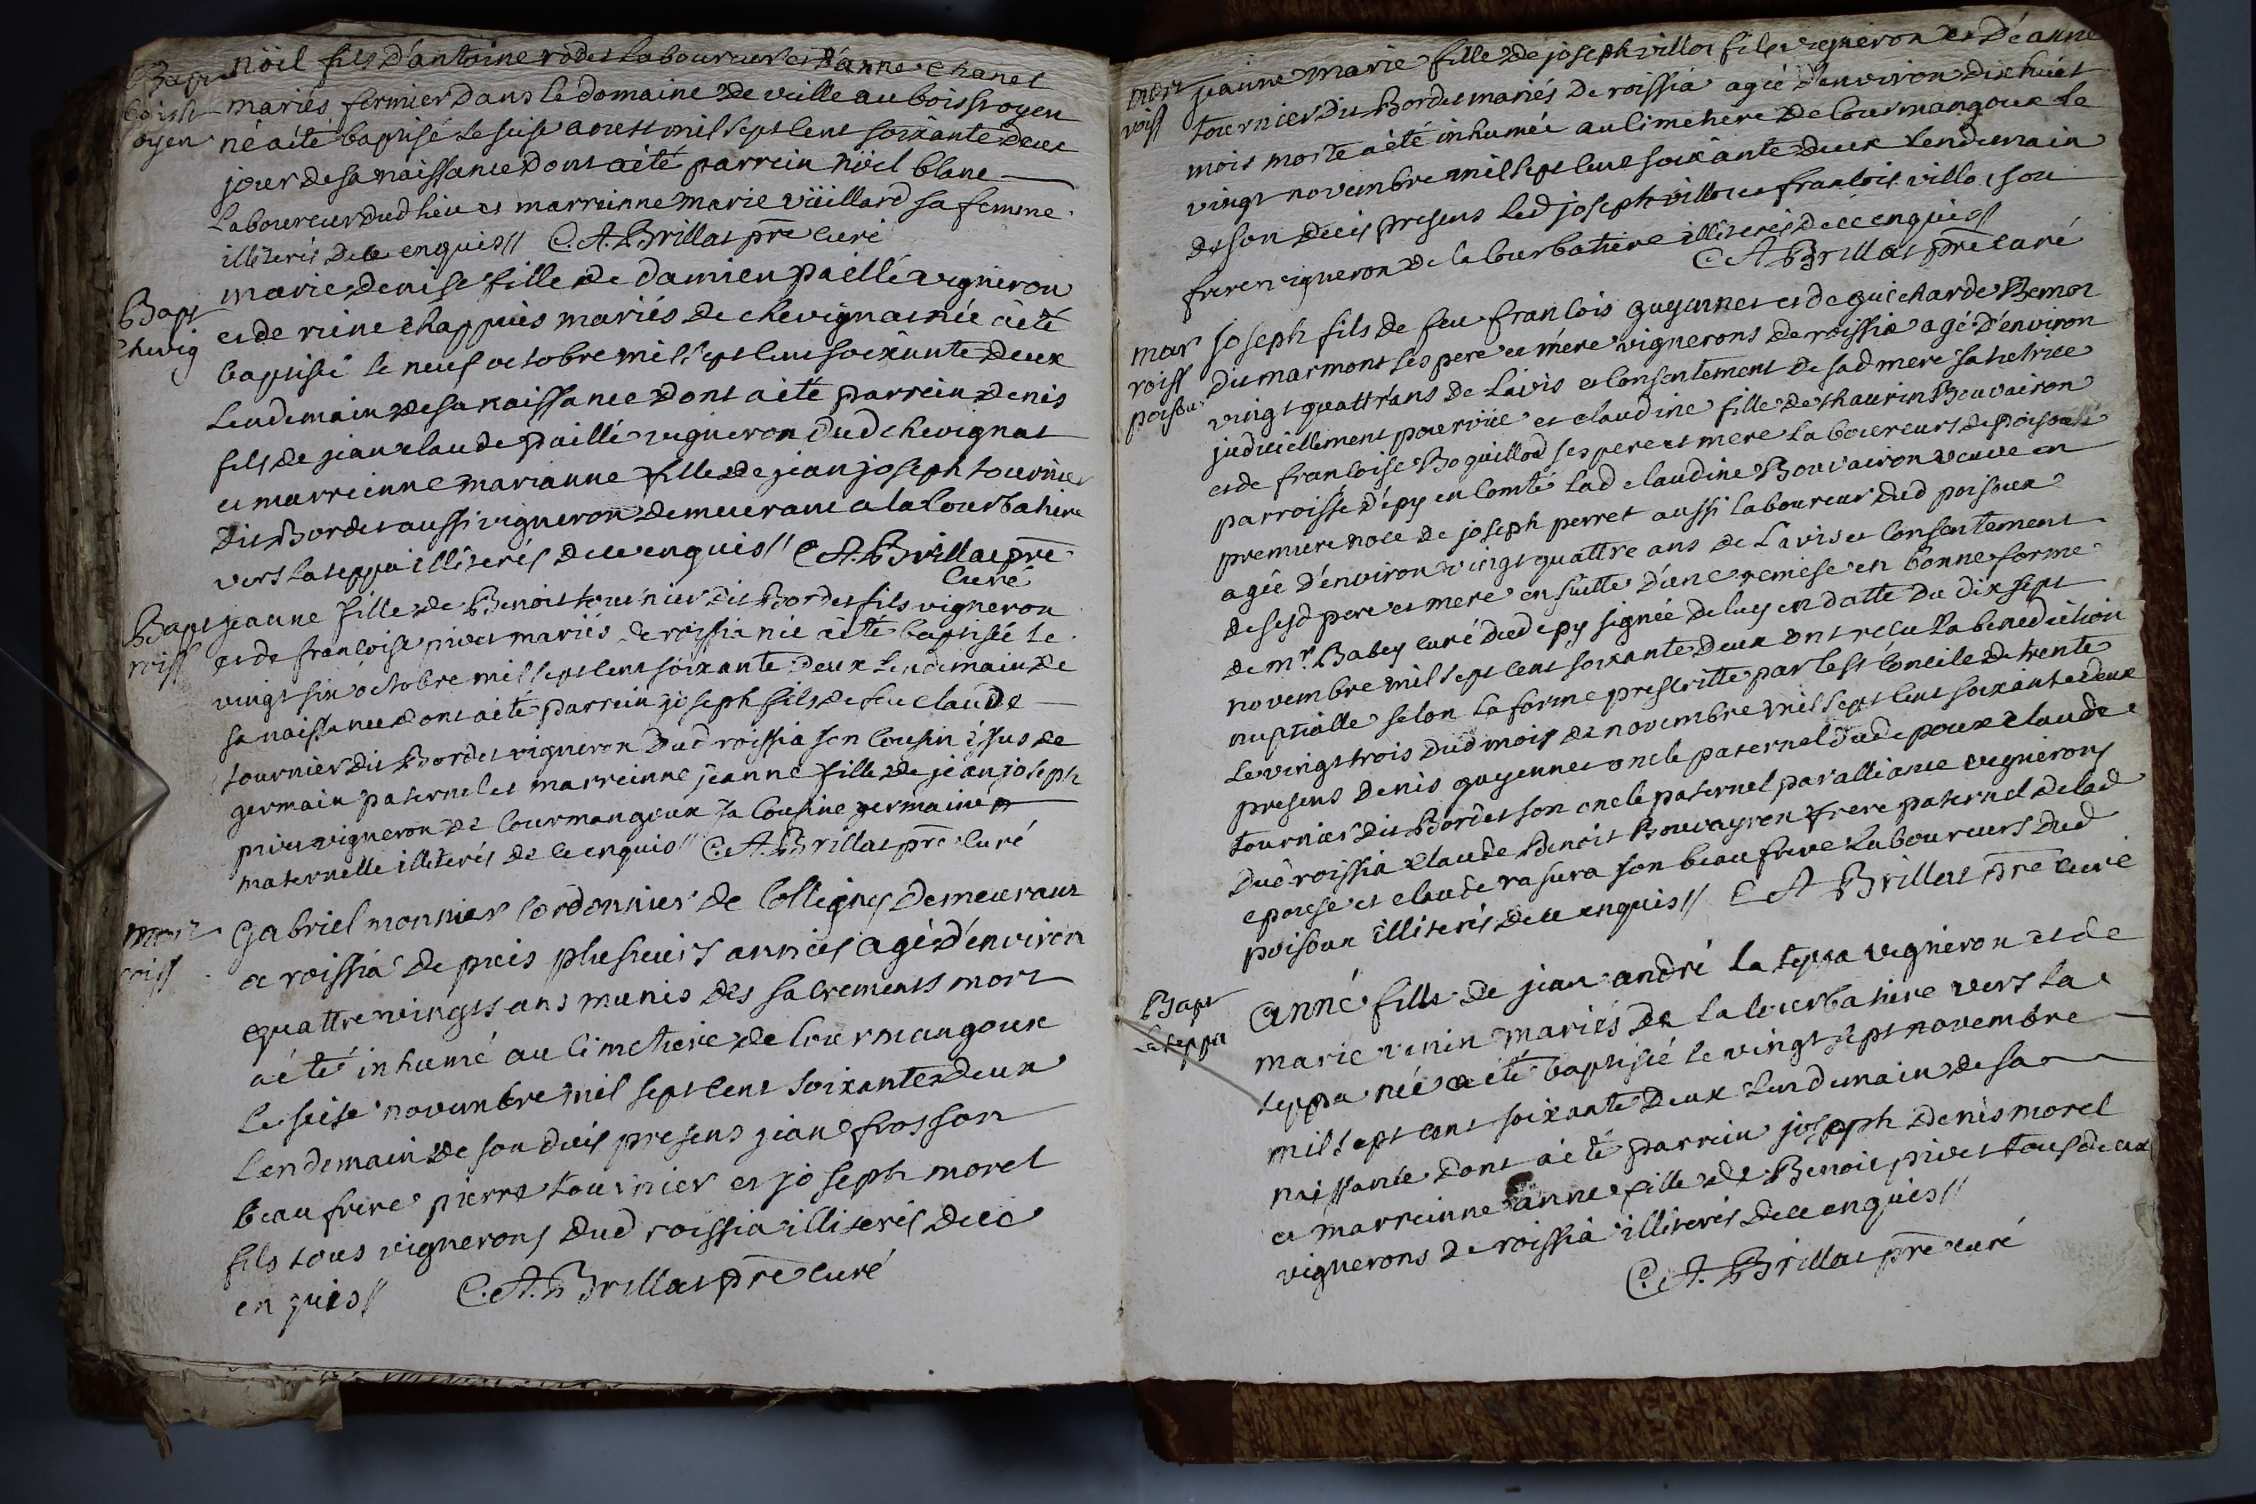 Bapt
boissr
oyen
nöil fils d'antoine rodet laboureur et d'anne chanel
mariés fermier dans le domaine de veille au boissroyen
né a été baptisé le seise aoust mil sept cent soixante deux
jour de sa naissance dont a été parrein nöel blanc
laboureur dud lieu et marreinne marie vüillard sa femme
illiterés de ce enquis // C. A. Brillat prê curé
Bapt
chevig
marie denise fille de damien paillé vigneron
et de reine chappuis mariés de chevignat née a été
baptisée le neuf octobre mil sept cent soixante deux
lendemain de sa naissance dont a été parrein denis
fils de jean claude paillé vigneron dud chevignat
et marreinne marianne fille de jean joseph tournier
dit Bordet aussi vigneron demeurant a la courbatiere
vers la teppe illiterés de ce enquis // C. A. Brillat prê
curé
Bapt
roiss
jeanne fille de Benoit tournier dit Bordet fils vigneron
et de françoise pivet mariés de roissia née a été baptisée le
vingt six octobre mil sept cent soixante deux lendemain de
sa naissance dont a été parrein joseph fils de feu claude
tournier dit Bordet vigneron dud roissia son cousin issus de
germain paternel et marreinne jeanne fille de jean joseph
pivet vigneron de courmangoux sa cousine germaine
maternelle illiterés de ce enquis // C. A. Brillat prê curé
mort
roiss
Gabriel monnier cordonnier de Colligny demeurant
a roissia depuis plusieurs années agé d'environ
quattre vingts ans munis des sacrements mort
a été inhumé au cimetiere de courmangoux
le seise novembre mil sept cent soixante deux
lendemain de son decés presens jean frosson
beaufrere pierre tournier et joseph morel
fils tous vignerons dud roissia illiterés de ce
enquis // C. A. Brillat prê curé
mort
roiss
jeanne marie fille de joseph villot fils vigneron et d'eanne
tournier dit Bordet mariés de roissia agée d'environ dix huit
mois morte a été inhumée au cimetiere de courmangoux le
vingt novembre mil sept cent soixante deux lendemain
de son decés presens led joseph villot et francois villot son
frere vigneron de la courbatiere illiterés de ce enquis //
C A Brillat prê curé
mar
roiss
poisou
joseph fils de feu francois guyennet et de guicharde Bemot
du marmont ses pere et mere vignerons de roissia agé d'environ
vingt quattr'ans de l'avis et consentement de sad mere sa tutrice
judiciellement pourvüe et claudine fille de thaurin Bouvairon
et de francoise Boquillod ses pere et mere laboureurs de poisoux
parroisse d'épy en comté lad claudine Bouvairon veuve en
premiere noce de joseph perret aussi laboureur dud poisoux
agée d'environ vingt quattre ans de l'avis et consentement
de sesd pere et mere en suitte d'une remise en bonne forme
de mr. Babey curé dud epy signée de luy en datte du dix sept
novembre mil sept cent soixante deux ont reçu la benediction
nuptialle selon la forme prescritte par le st Concile de trente
le vingt trois dud mois de novembre mil sept cent soixante deux
presens denis guyennet oncle paternel dud epoux claude
tournier dit Bordet son oncle paternel par alliance vignerons
dud roissia claude Benoit Bouvayron frere paternel de lad
epouse et claude rasura son beaufrere laboureurs dud
poisoux illiterés de ce enquis // C A Brillat prê curé
Bapt
la teppa
anné fille de jean andré la teppa vigneron et de
marie venin mariés de la courbatiere vers la
teppa née a été baptisée le vingt sept novembre
mil sept cent soixante deux lendemain de sa
naissance dont a été parrein joseph denis morel
et marreinne anne fille de Benoit pivet tous deux
vignerons de roissia illiterés de ce enquis //
C. A. Brillat prê curé